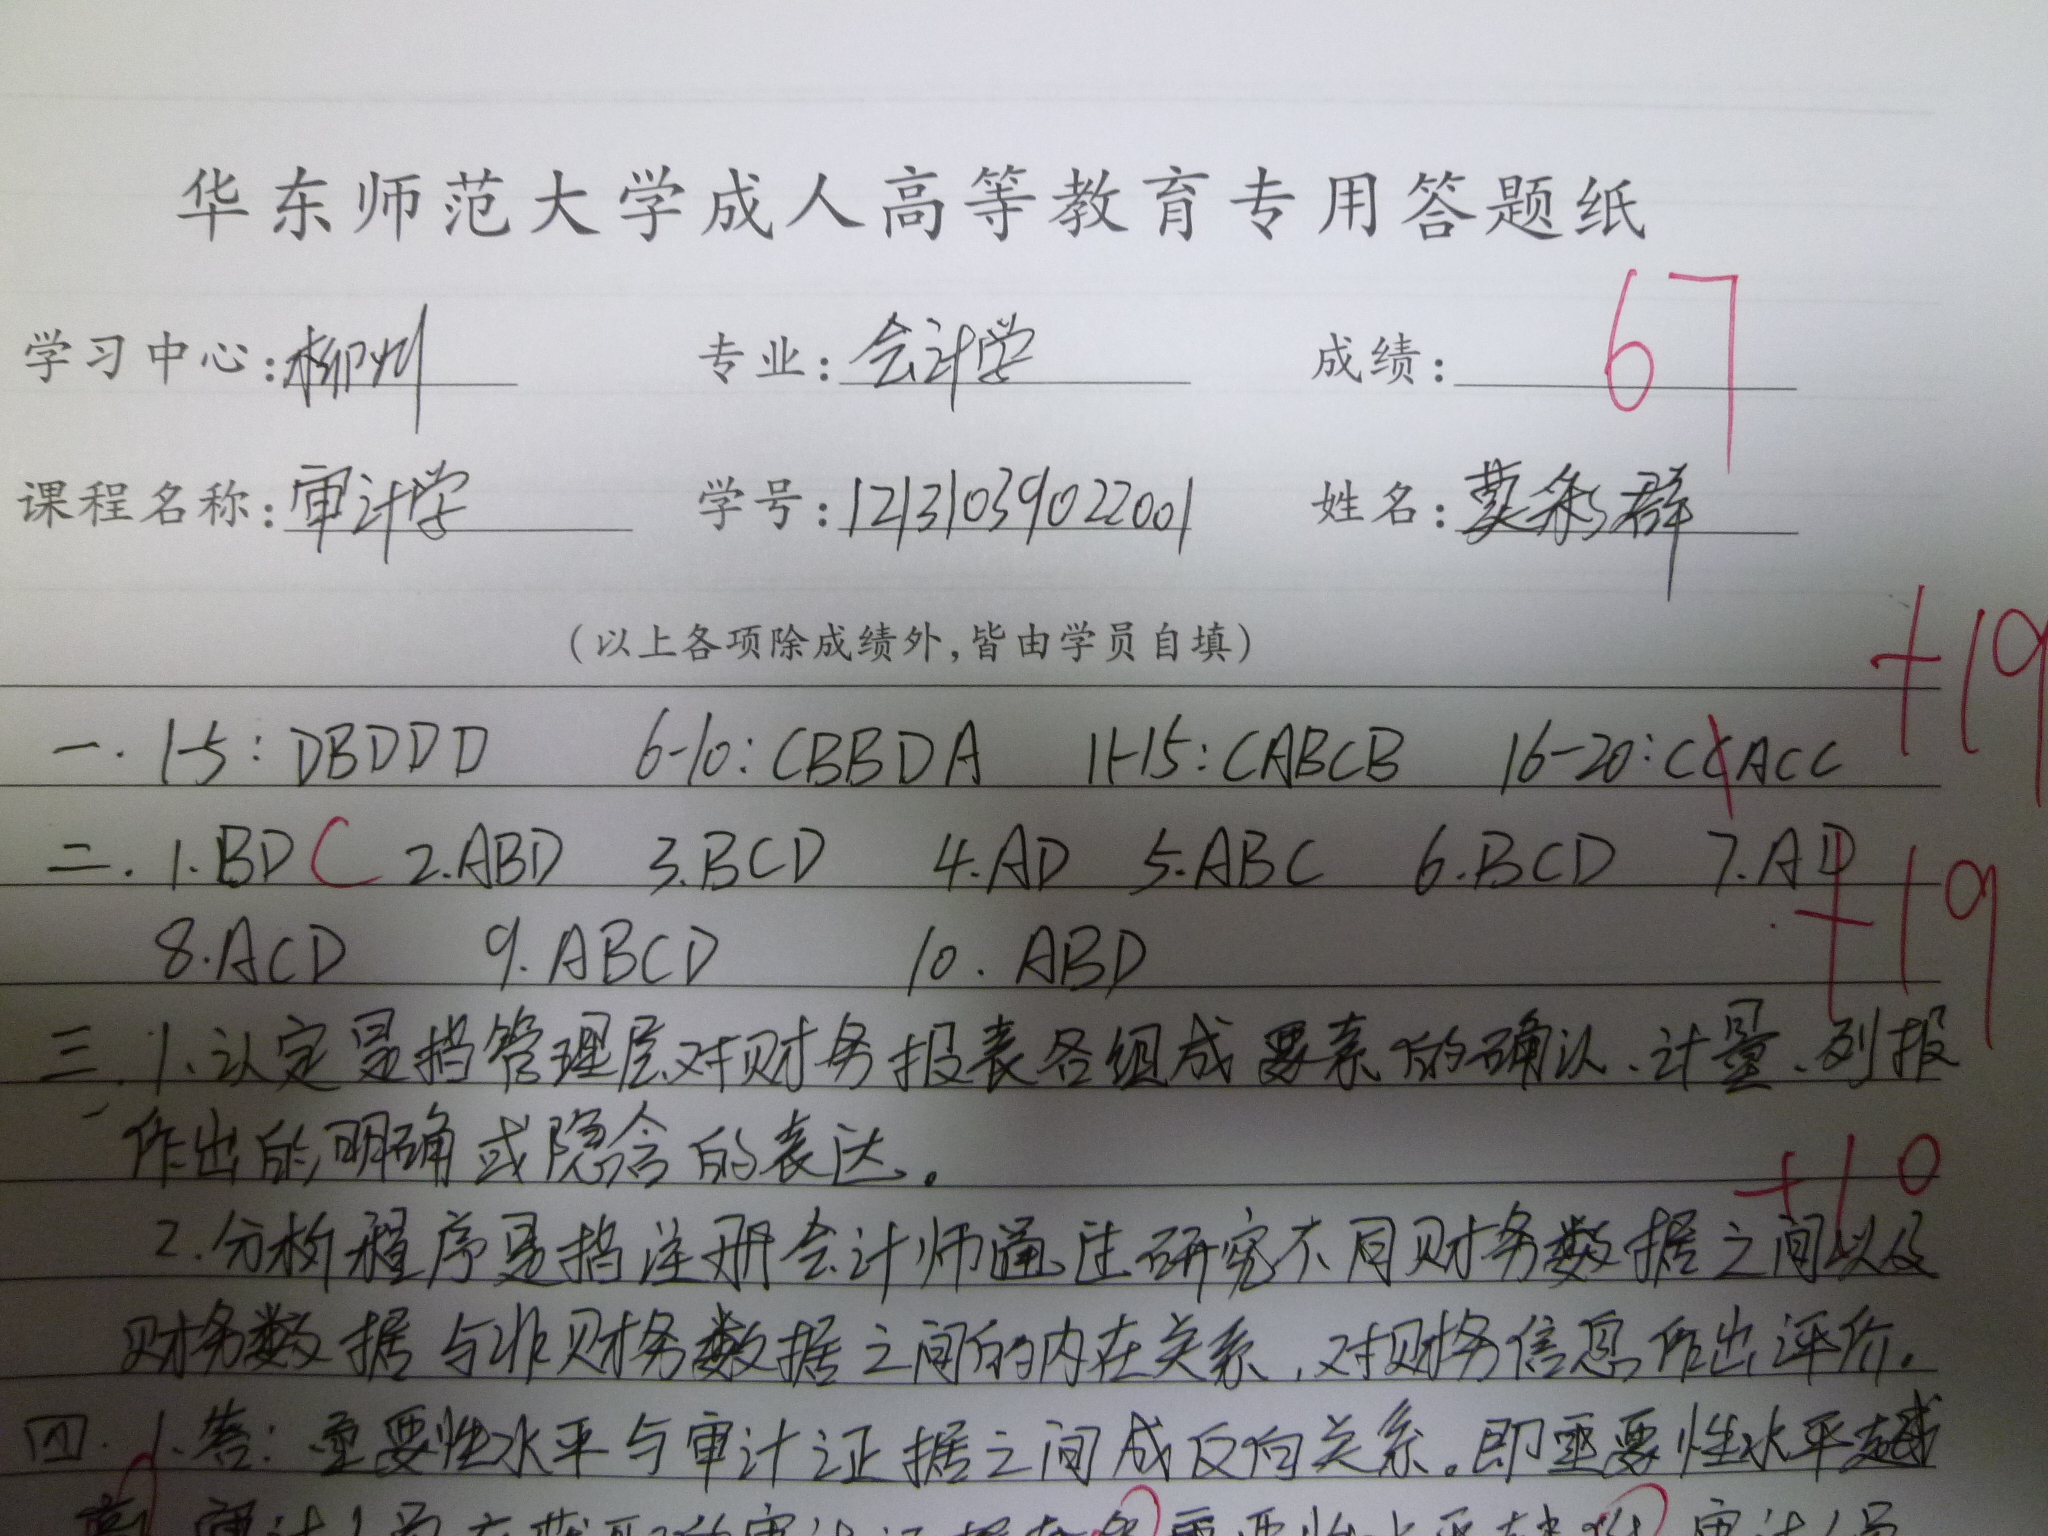 华东师范大学成人高等教育专用答题纸
学习中心:柳州 专业:会计学 成绩: 67
课程名称:审计学 学号:12131039022001 姓名:彩群
(以上各项除成绩外,皆由学员自填)
+19
一. 1-5: DBDDD 6-10: CBBDA 11-15: CABCB 16-20: CCACC
二. 1.BD C 2.ABD 3.BCD 4.AD 5.ABC 6.BCD 7.AD
+19
8.ACD 9.ABCD 10. ABD
三. 1.认定是指管理层对财务报表各组成要素的确认、计量、列报
作出的明确或隐含的表达。
+10
2.分析程序是指注册会计师通过研究不同财务数据之间以及
财务数据与非财务数据之间的内在关系,对财务信息作出评价.
四. 1.答:重要性水平与审计证据之间成反向关系。即重要性水平越